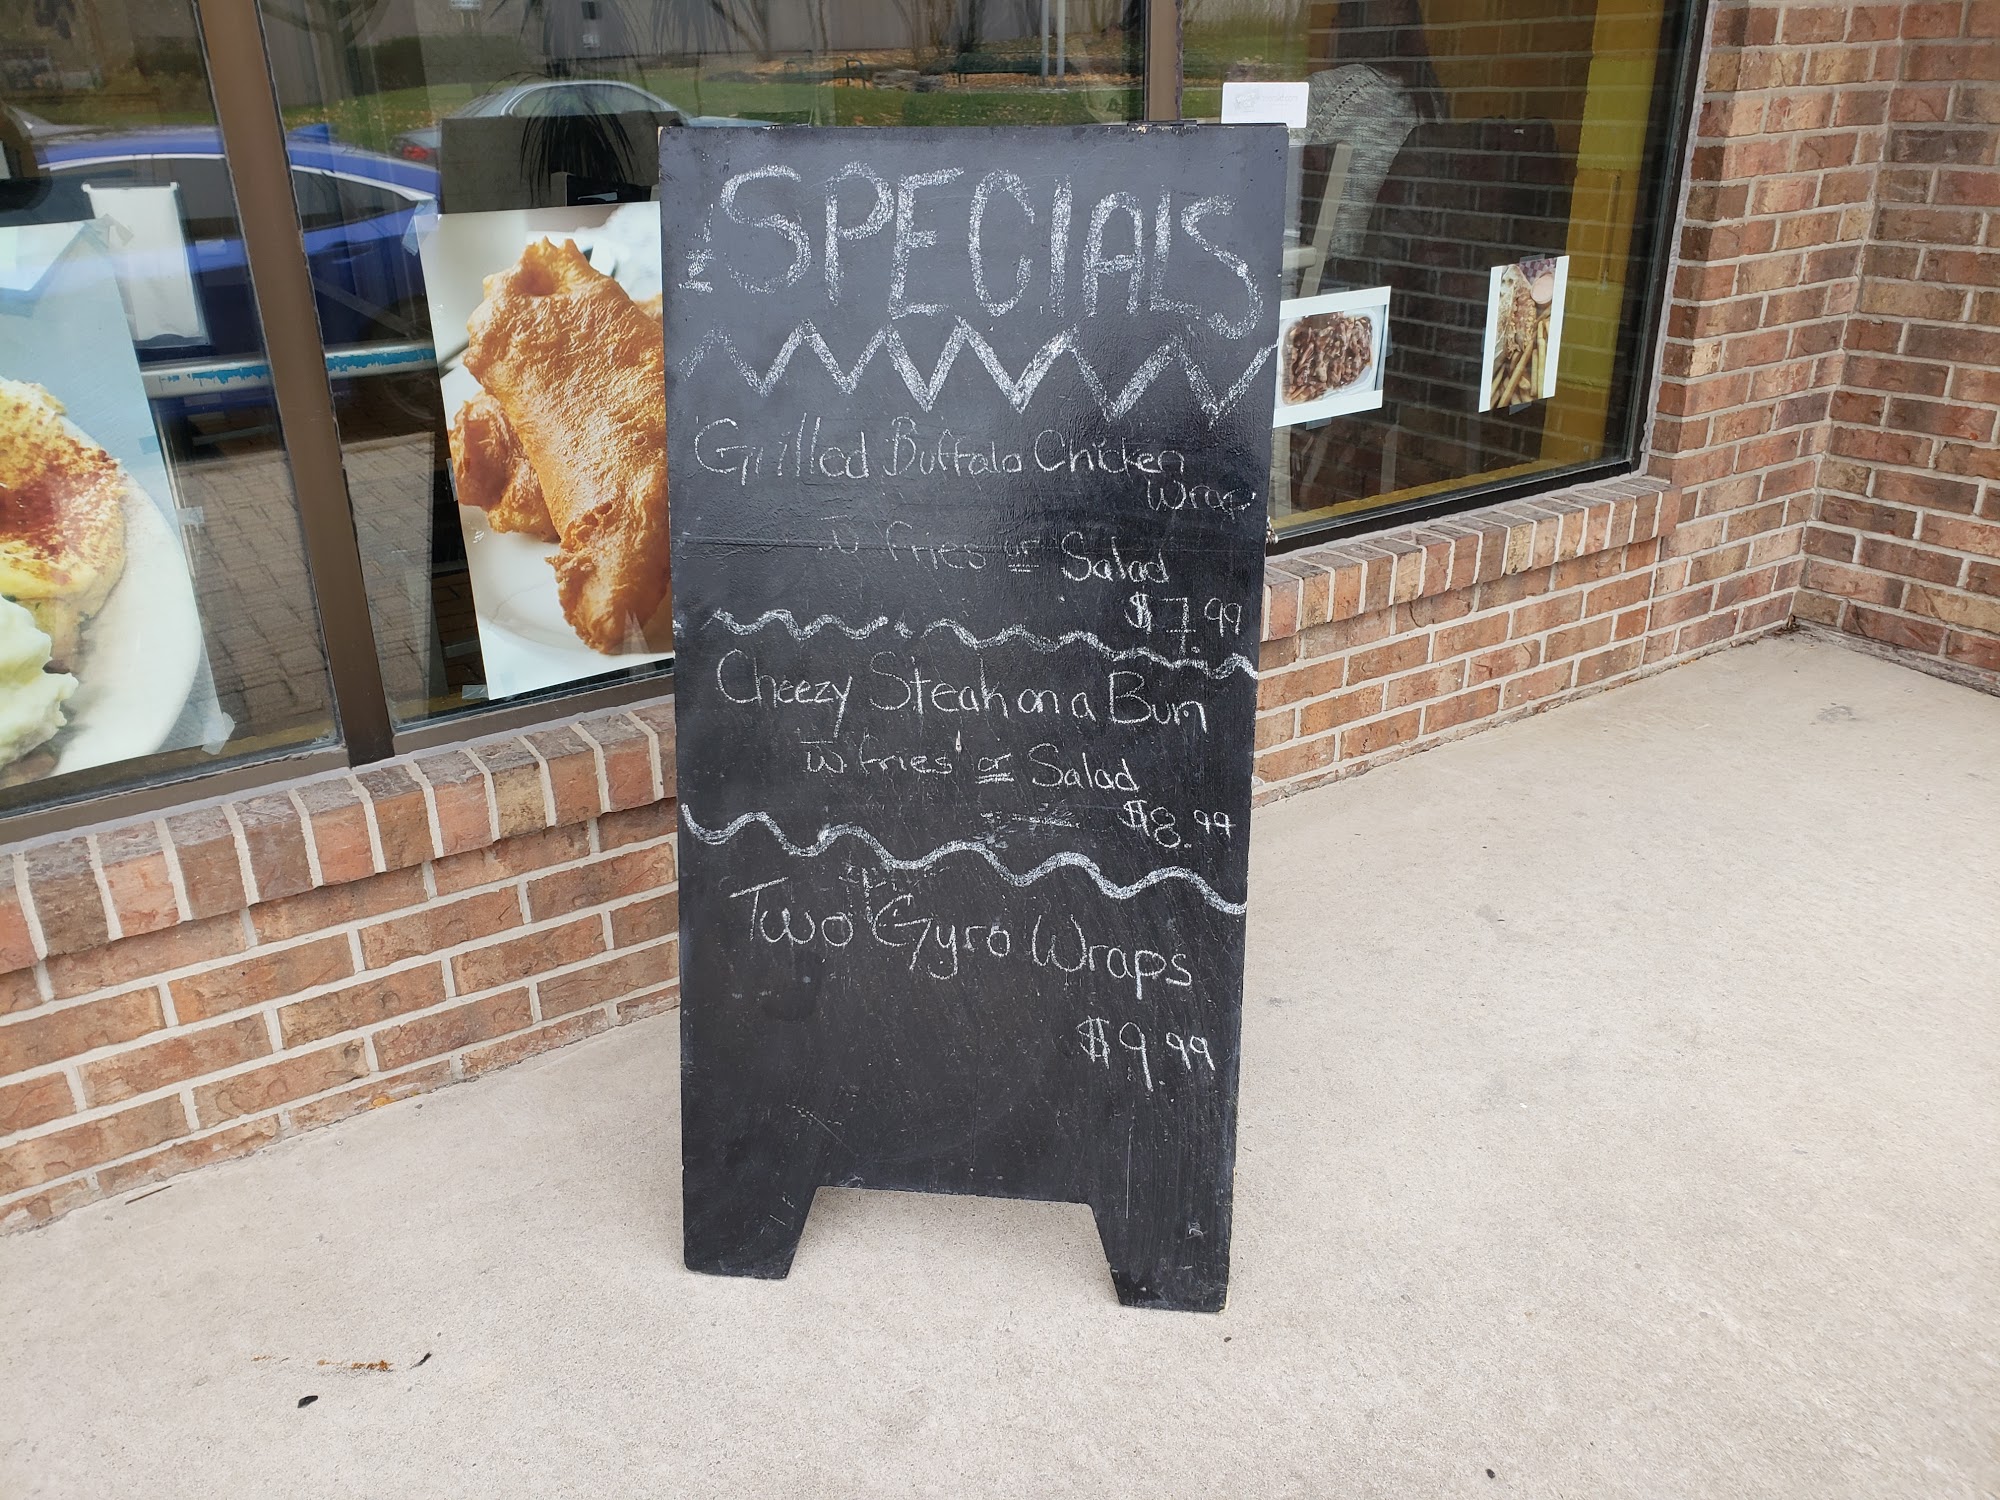 SPECIALS
Grilled Buffalo Chicken
Wrap
w fries or Salad
$7.99
Cheezy Steak on a Bun
w fries or Salad
$8.99
Two Gyro Wraps
$9.99